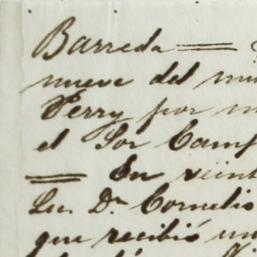 Barreda
nueve del
Perry por
el Sor Camp
En veint
Lu. Dn Cornelio
que recibió un